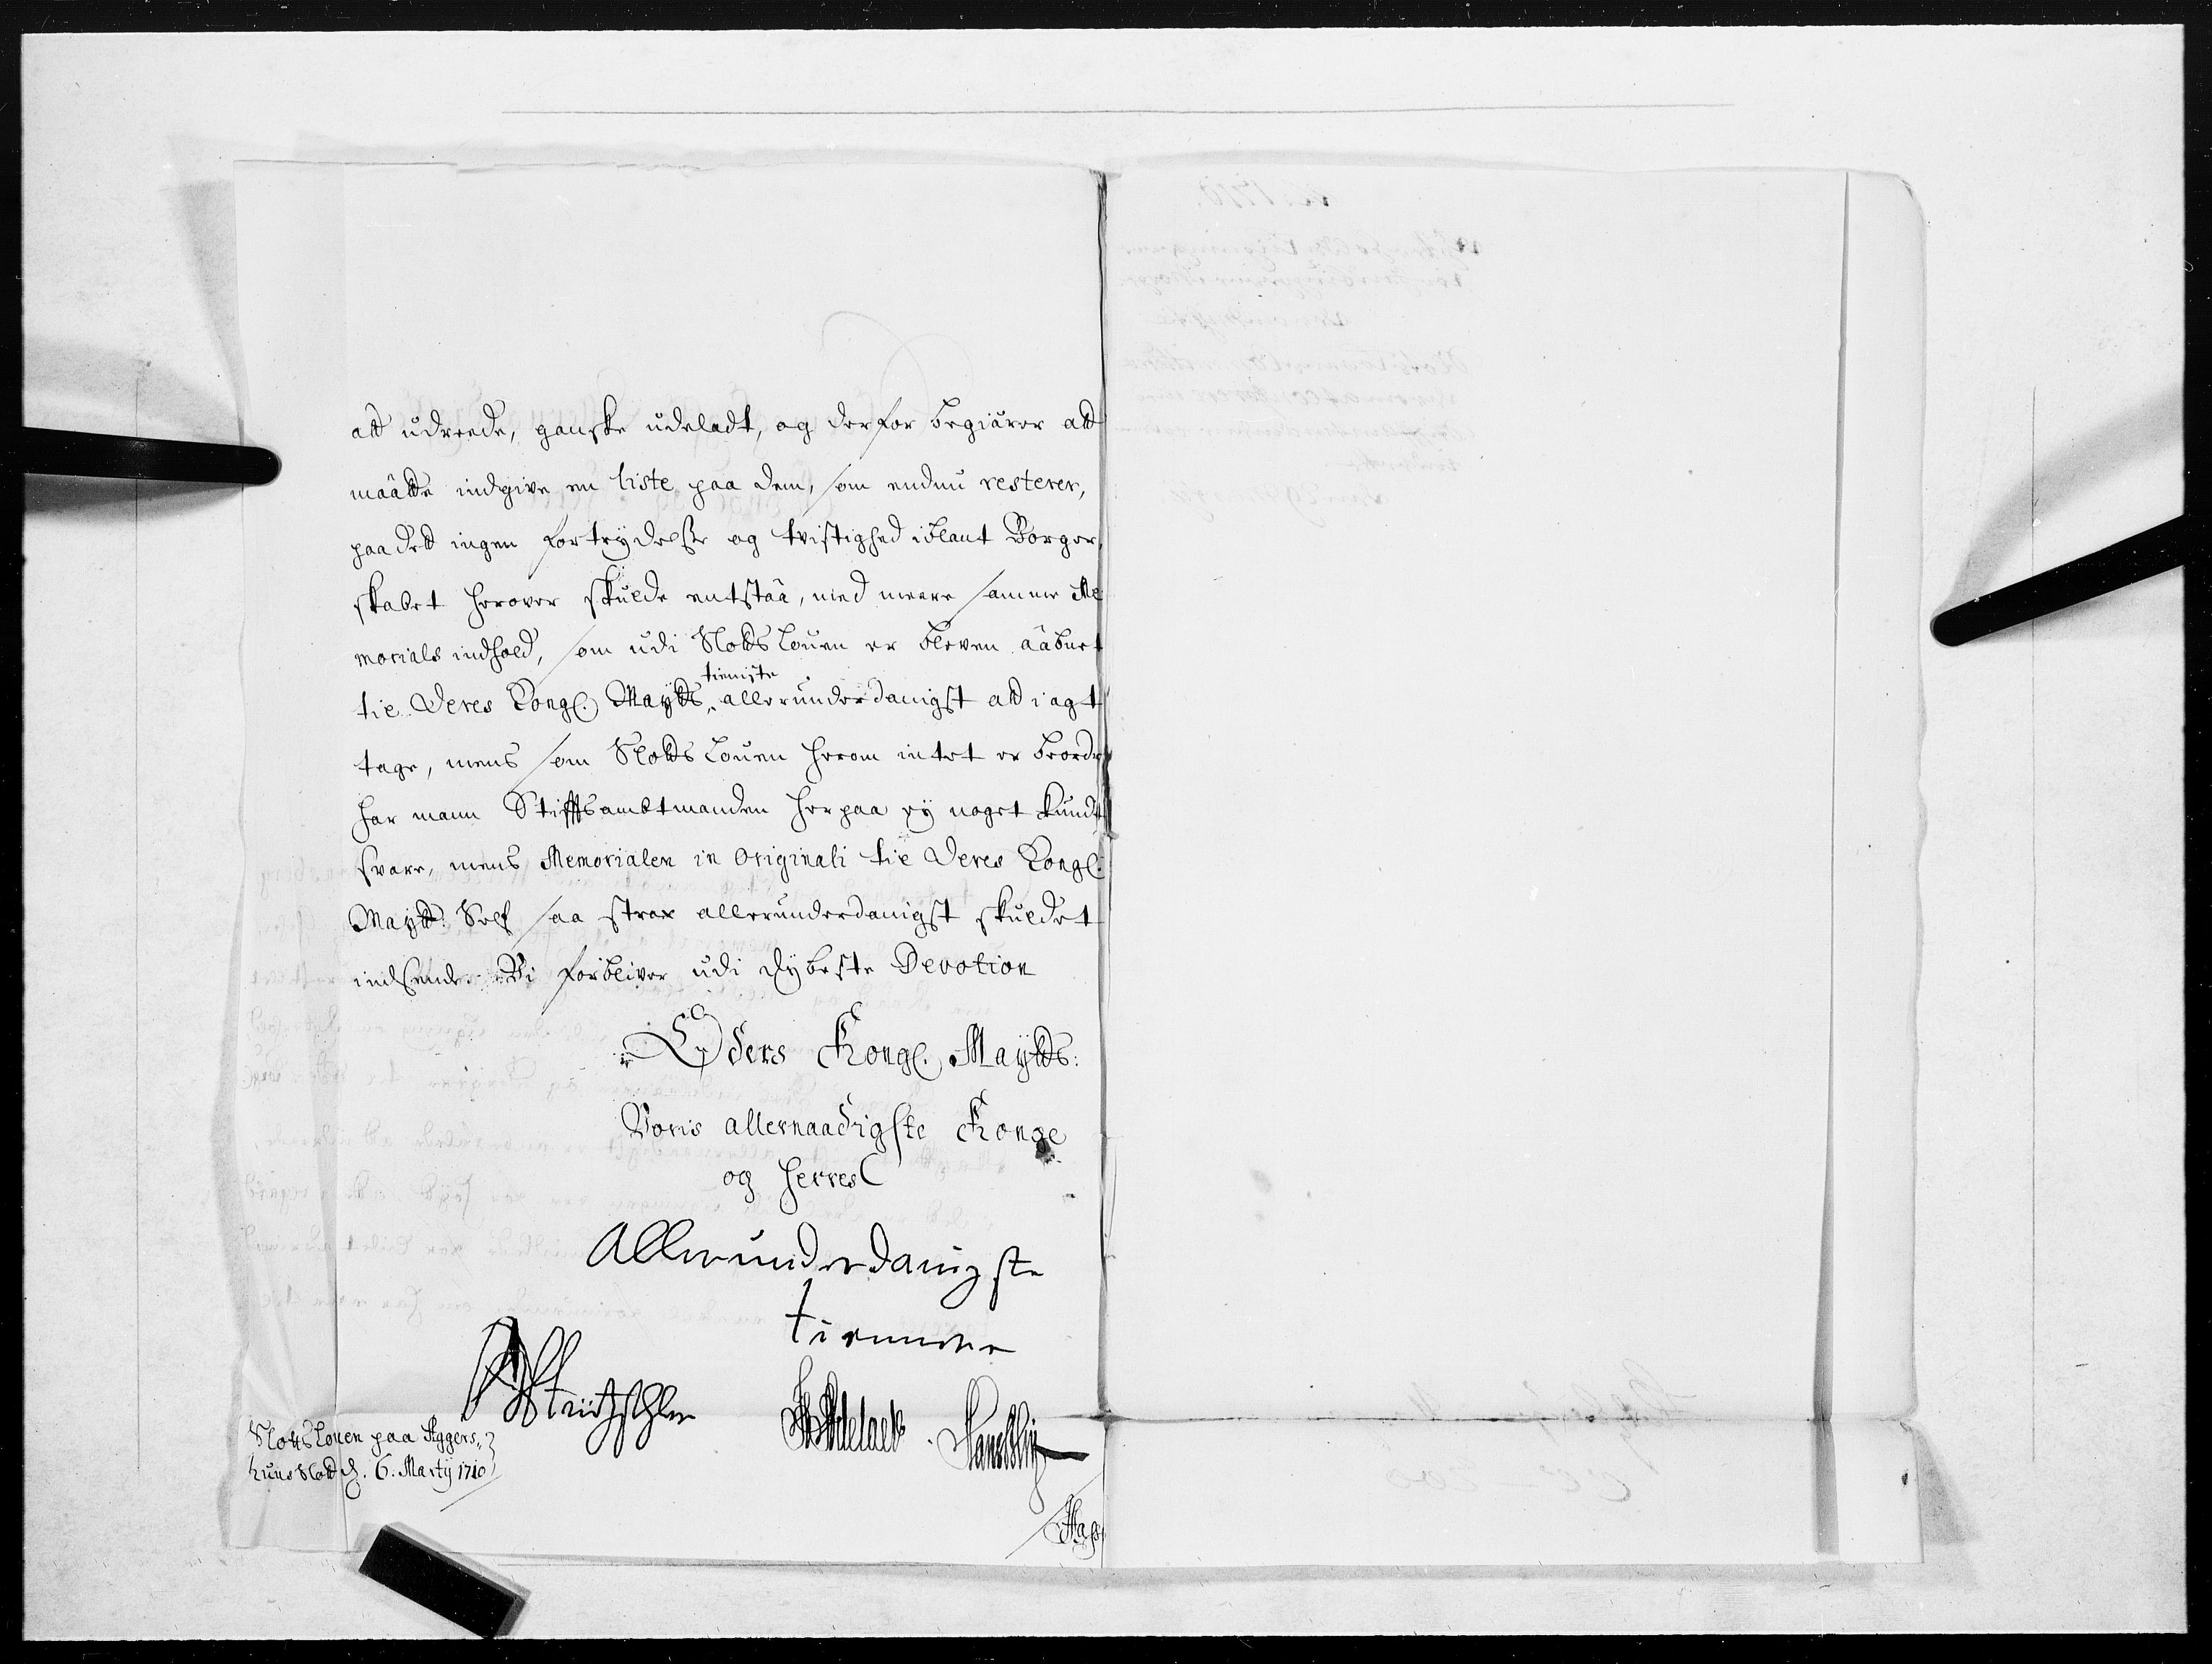 att udreede, ganske udeladt, og derfor begiærer att
maatte indgive en liste paa dem, som endnu resterer,
paa dett ingen fortrydelsse og tvistighed iblant Borger,
skabet herover skulde entstaa, med meere samme Me
morials indhold, som udi Slotts Louen er bleven aabnet
til Deres Kongl. Maytts tieniste allerunderdanigst att i agt
tage, mens som Slotts Louen herom intet er beordr
har mann Stifftsambtmanden herpaa ey noget kundt
svare, mens Memorialen in Originali til Deres Kongl.
Maytt Self saa strax allerunderdanigst skuldet
indsende. Vi forbliver udi dybeste Devotion
Eders Kongl. Maytts:
Voris allernaadigste Konge
og Herres
Allerunderdanigste
tiennere
Tritzschler
Adelaer
Slotts Louen paa Aggers„
huus Slott d. 6. Marty 1710